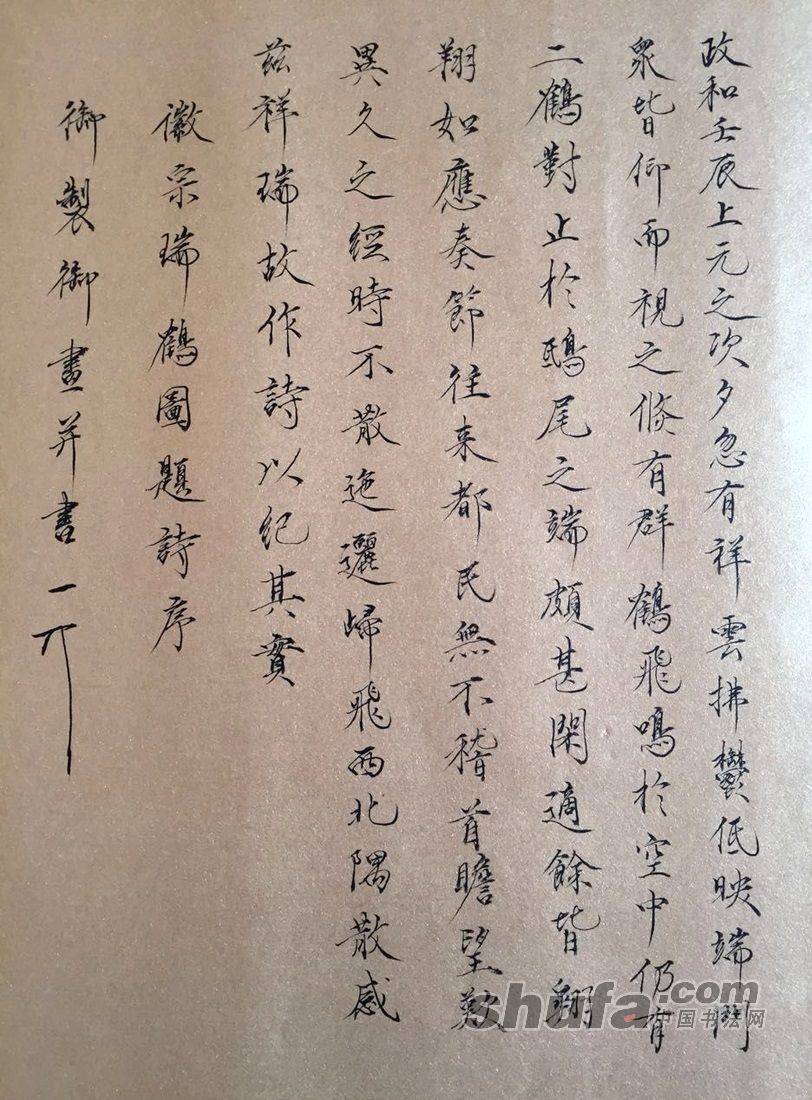 政和壬辰上元之次夕忽有祥雲拂鬱低映端門
衆皆仰而視之倏有群鶴飛鳴於空中仍有
二鶴對止於鴟尾之端頗甚閑適餘皆翱
翔如應奏節往来都民無不稽首瞻望歎
異久之經時不散迤邐歸飛西北隅散感
兹祥瑞故作詩以纪其實
徽宗瑞鶴圖題詩序
御製御畫并書
shufa.com
中国书法网